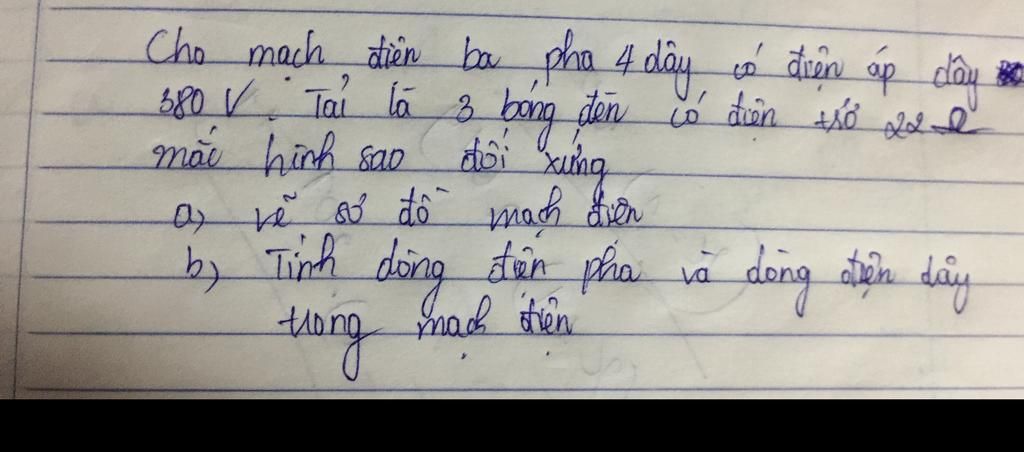 Cho mạch điện ba pha 4 dây có điện áp dây
380 V. Tải là 3 bóng đèn có điện trở 22 Ω
mắc hình sao đối xứng
a) vẽ sơ đồ mạch điện
b) Tính dòng điện pha và dòng điện dây
trong mạch điện